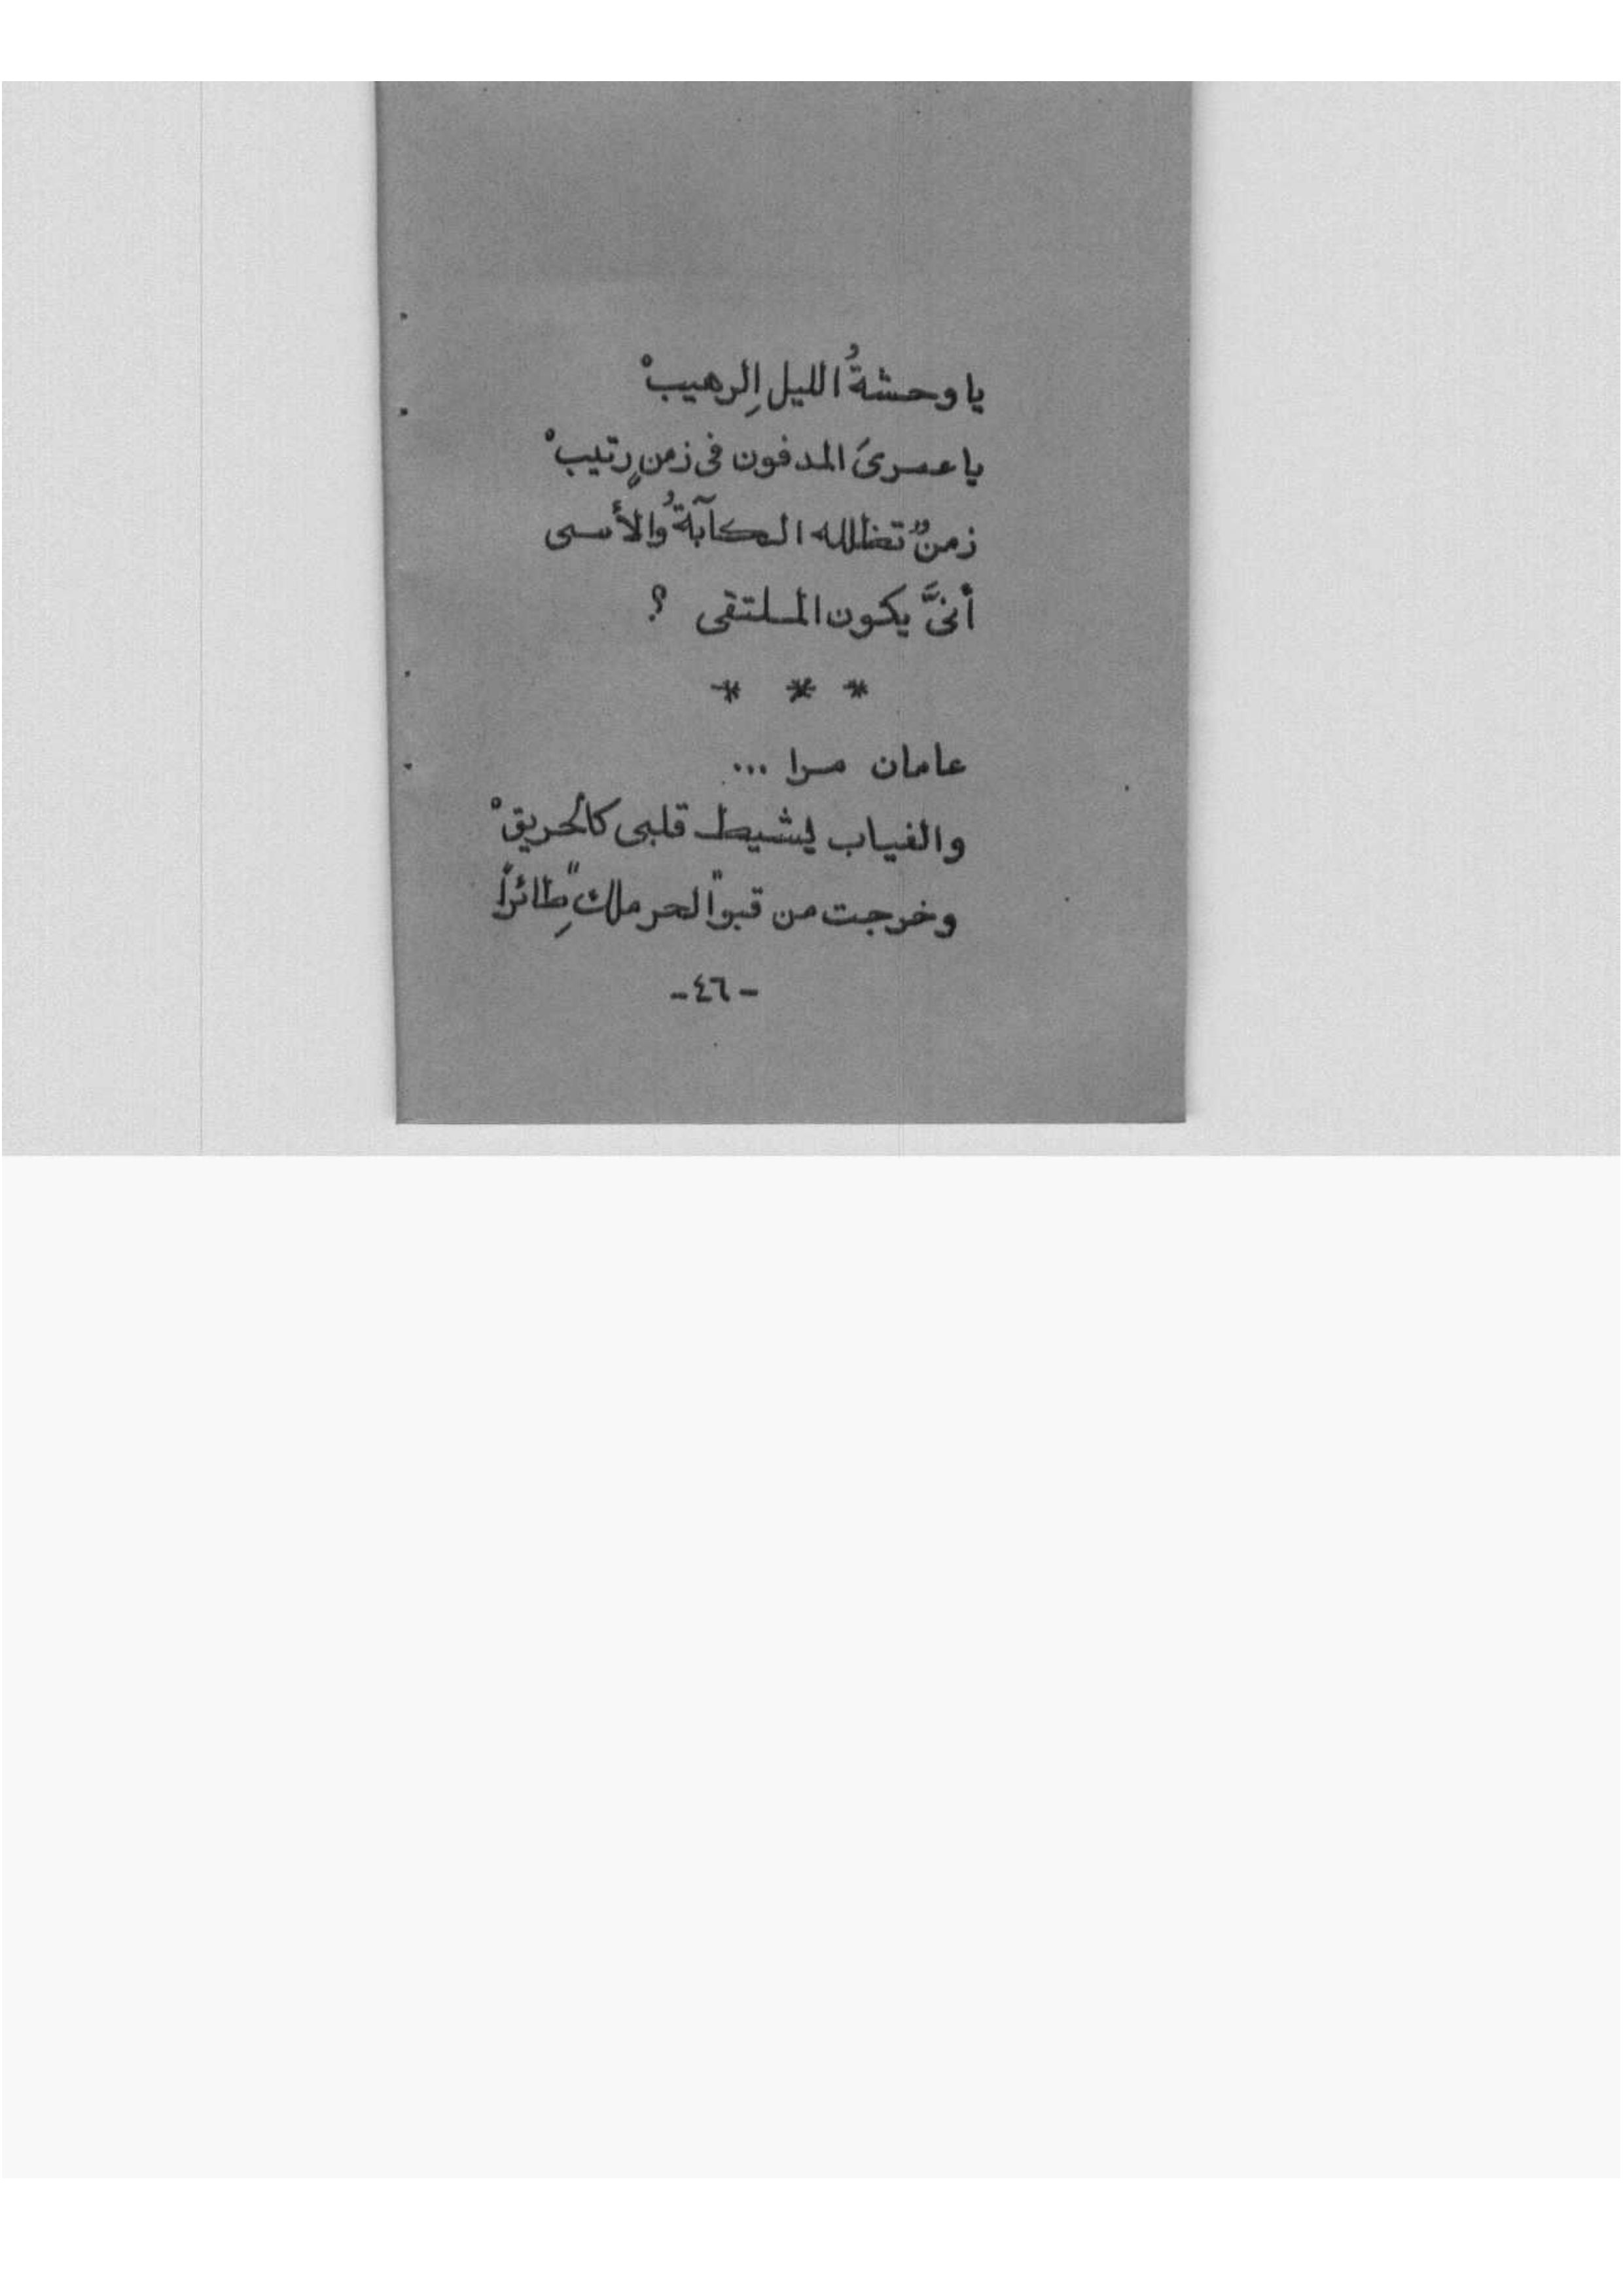 يا وحشةُ الليلِ الرهيبْ
يا عمرىَ المدفون فى زمنٍ رتيبْ
زمنٌ تظلله الكآبةُ والأسى
أنىَّ يكون الملتقى ؟
* * *
عامان مرا ...
والغياب يشيط قلبى كالحريقْ
وخرجت من قبو "الحرملك" طائراً
-٤٦-